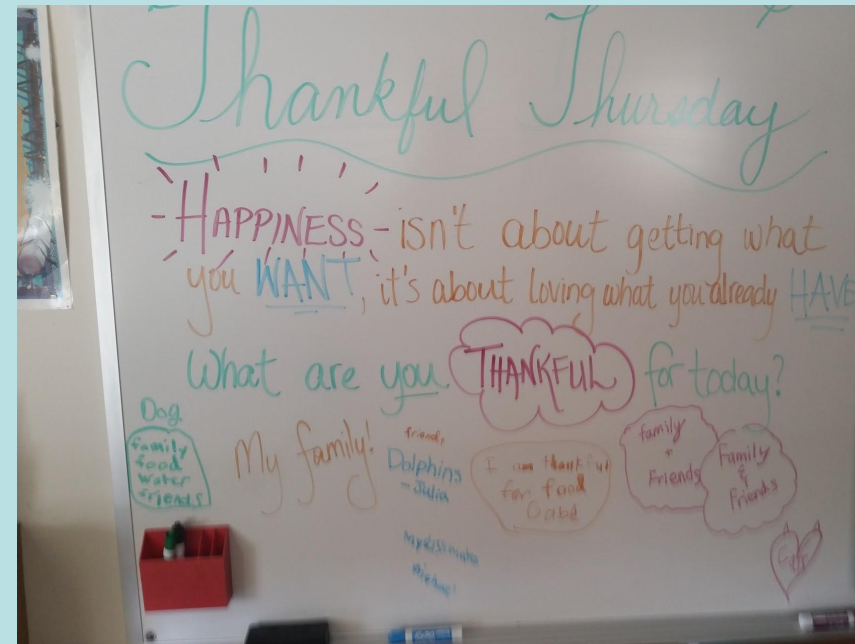 Thankful Thursday
-HAPPINESS- isn't about getting what
you WANT, it's about loving what you already HAVE
What are you THANKFUL for today?
Dog
family
food
water
friends
My family!
friends
Dolphins
-Julia
I am thankful
for food
Gabe
family
+
Friends
Family
&
Friends